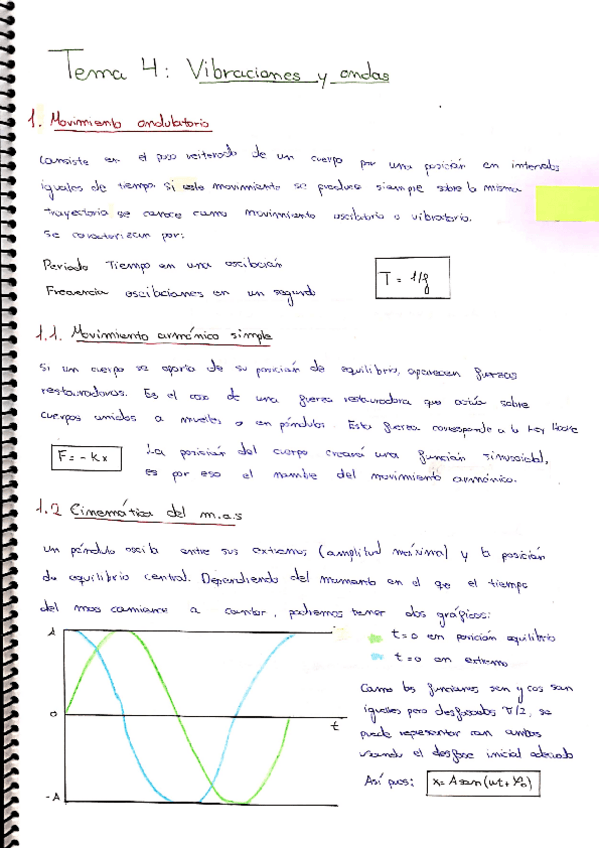 Tema 4: Vibraciones y ondas
1. Movimiento ondulatorio
Consiste en el paso reiterado de un cuerpo por una posición en intervalos
iguales de tiempo. Si este movimiento se produce siempre sobre la misma
trayectoria se conoce como movimiento oscilatorio o vibratorio.
Se caracterizan por:
Periodo Tiempo en una oscilación
Frecuencia oscilaciones en un segundo
T = 1/f
1.1. Movimiento armónico simple
Si un cuerpo se aparta de su posición de equilibrio, aparecen fuerzas
restauradoras. Es el caso de una fuerza restauradora que actúa sobre
cuerpos unidos a muelles o en péndulos. Esta fuerza corresponde a la Ley Hooke
F = - Kx
La posición del cuerpo creará una función sinusoidal,
es por eso el nombre del movimiento armónico.
1.2 Cinemática del m.a.s
Un péndulo oscila entre sus extremos (amplitud máxima) y la posición
de equilibrio central. Dependiendo del momento en el que el tiempo
del mas comience a contar, podremos tener dos gráficos:
A
0
-A
t
t=0 en posición equilibrio
t=0 en extremo
Como las funciones sen y cos son
iguales pero desfasadas π/2, se
puede representar con ambas
usando el desfase inicial adecuado
Así pues: x= A sen (ωt + φ₀)